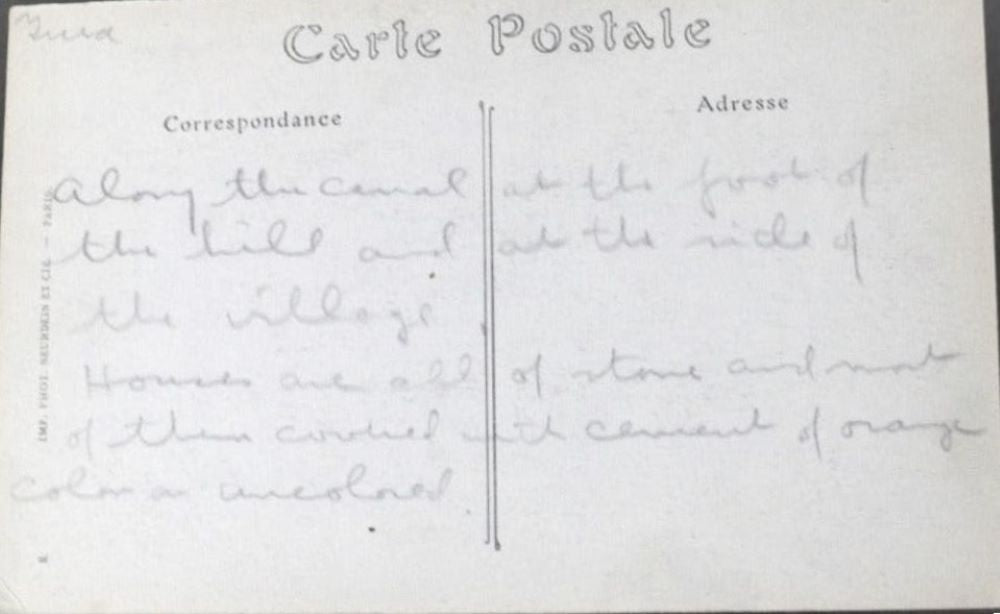 Carte Postale
Correspondance
Adresse
Along the canal at the foot of
the hill and at the side of
the village
Houses are all of stone and most
of them covered with cement of orange
color or uncolored
IMP. PHOT. NEURDEIN ET CIE. — PARIS